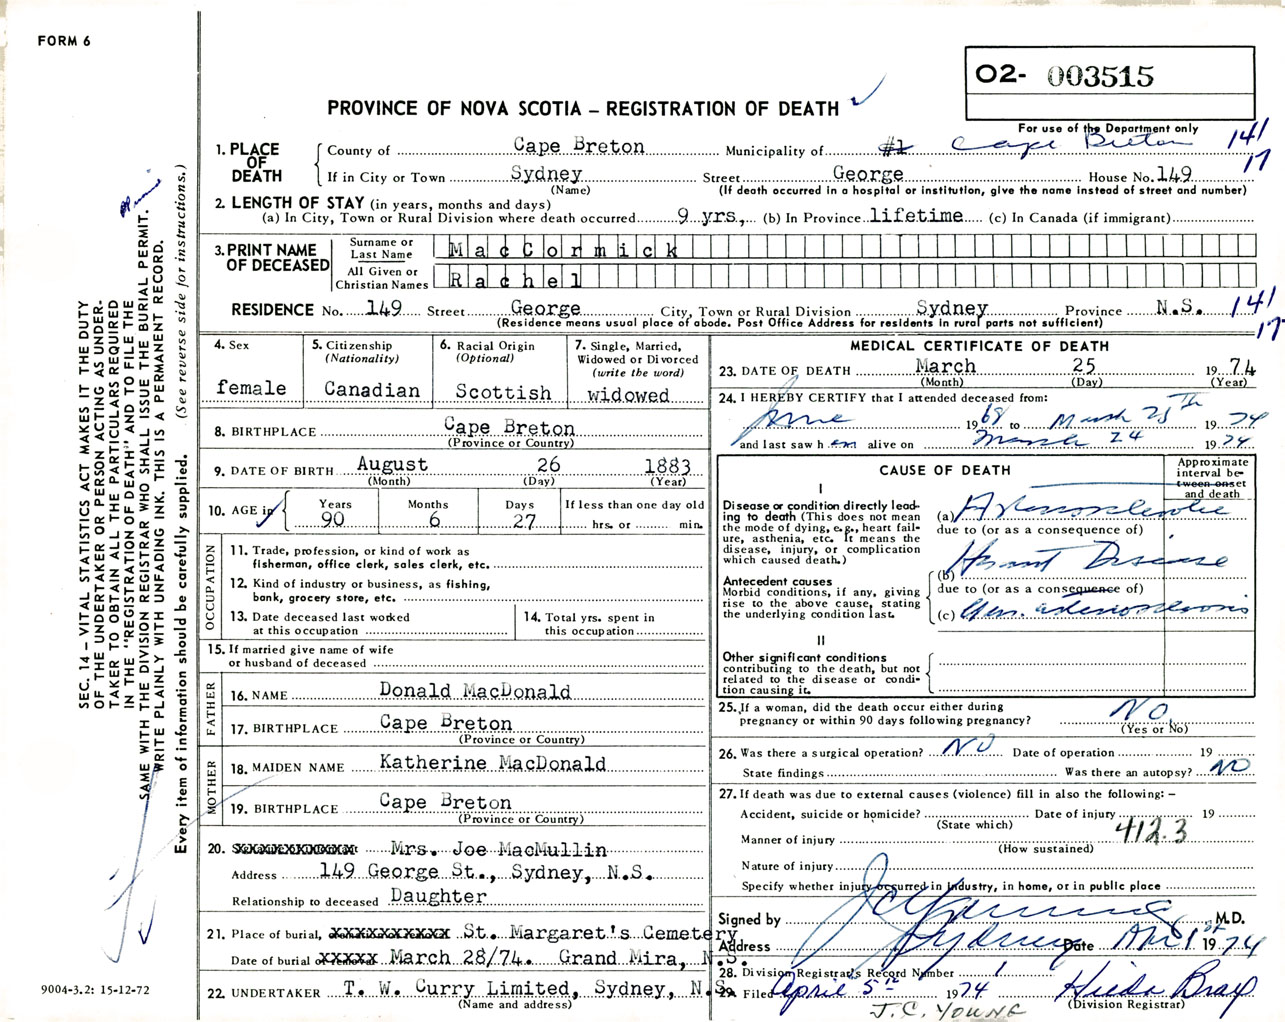 FORM 6
O2- 003515
PROVINCE OF NOVA SCOTIA – REGISTRATION OF DEATH
For use of the Department only
1. PLACE OF DEATH
County of Cape Breton Municipality of #1 Cape Breton 141
17
If in City or Town Sydney Street George House No. 149
(Name) (If death occurred in a hospital or institution, give the name instead of street and number)
2. LENGTH OF STAY (in years, months and days)
(a) In City, Town or Rural Division where death occurred 9 yrs, (b) In Province lifetime (c) In Canada (if immigrant)
3. PRINT NAME OF DECEASED
Surname or Last Name MacCormick
All Given or Christian Names Rachel
RESIDENCE No. 149 Street George City, Town or Rural Division Sydney Province N.S. 141
17
(Residence means usual place of abode. Post Office Address for residents in rural parts not sufficient)
4. Sex
female
5. Citizenship
(Nationality)
Canadian
6. Racial Origin
(Optional)
Scottish
7. Single, Married,
Widowed or Divorced
(write the word)
widowed
8. BIRTHPLACE Cape Breton
(Province or Country)
9. DATE OF BIRTH August 26 1883
(Month) (Day) (Year)
10. AGE in
Years Months Days If less than one day old
90 6 27 hrs. or min.
OCCUPATION
11. Trade, profession, or kind of work as
fisherman, office clerk, sales clerk, etc.
12. Kind of industry or business, as fishing,
bank, grocery store, etc.
13. Date deceased last worked
at this occupation
14. Total yrs. spent in
this occupation
15. If married give name of wife
or husband of deceased
FATHER
16. NAME Donald MacDonald
17. BIRTHPLACE Cape Breton
(Province or Country)
MOTHER
18. MAIDEN NAME Katherine MacDonald
19. BIRTHPLACE Cape Breton
(Province or Country)
20. Mrs. Joe MacMullin
Address 149 George St., Sydney, N.S.
Relationship to deceased Daughter
21. Place of burial, St. Margaret's Cemetery
Date of burial March 28/74. Grand Mira, N.S.
22. UNDERTAKER T. W. Curry Limited, Sydney, N.S.
(Name and address)
MEDICAL CERTIFICATE OF DEATH
23. DATE OF DEATH March 25 1974
(Month) (Day) 19 (Year)
24. I HEREBY CERTIFY that I attended deceased from:
June 1968 to March 25th 1974
and last saw her alive on March 24 1974
CAUSE OF DEATH
Approximate
interval be-
tween onset
and death
I
Disease or condition directly lead-
ing to death (This does not mean
the mode of dying, e.g., heart fail-
ure, asthenia, etc. It means the
disease, injury, or complication
which caused death.)
(a) Arteriosclerotic
due to (or as a consequence of)
Antecedent causes
Morbid conditions, if any, giving
rise to the above cause, stating
the underlying condition last.
(b) Heart Disease
due to (or as a consequence of)
(c) Gen. arteriosclerosis
II
Other significant conditions
contributing to the death, but not
related to the disease or condi-
tion causing it.
25. If a woman, did the death occur either during
pregnancy or within 90 days following pregnancy? NO
(Yes or No)
26. Was there a surgical operation? NO Date of operation 19
State findings Was there an autopsy? NO
27. If death was due to external causes (violence) fill in also the following: –
Accident, suicide or homicide? Date of injury 19
(State which) 412.3
Manner of injury
(How sustained)
Nature of injury
Specify whether injury occurred in industry, in home, or in public place
Signed by J C Young M.D.
Address Sydney Date April 1st 1974
28. Division Registrar's Record Number 1
29. Filed April 5th 1974 Hilda Bray
(Division Registrar)
J. C. YOUNG
SEC. 14 – VITAL STATISTICS ACT MAKES IT THE DUTY
OF THE UNDERTAKER OR PERSON ACTING AS UNDER-
TAKER TO OBTAIN ALL THE PARTICULARS REQUIRED
IN THE "REGISTRATION OF DEATH" AND TO FILE THE
SAME WITH THE DIVISION REGISTRAR WHO SHALL ISSUE THE BURIAL PERMIT.
WRITE PLAINLY WITH UNFADING INK. THIS IS A PERMANENT RECORD.
Every item of information should be carefully supplied. (See reverse side for instructions.)
9004-3.2: 15-12-72